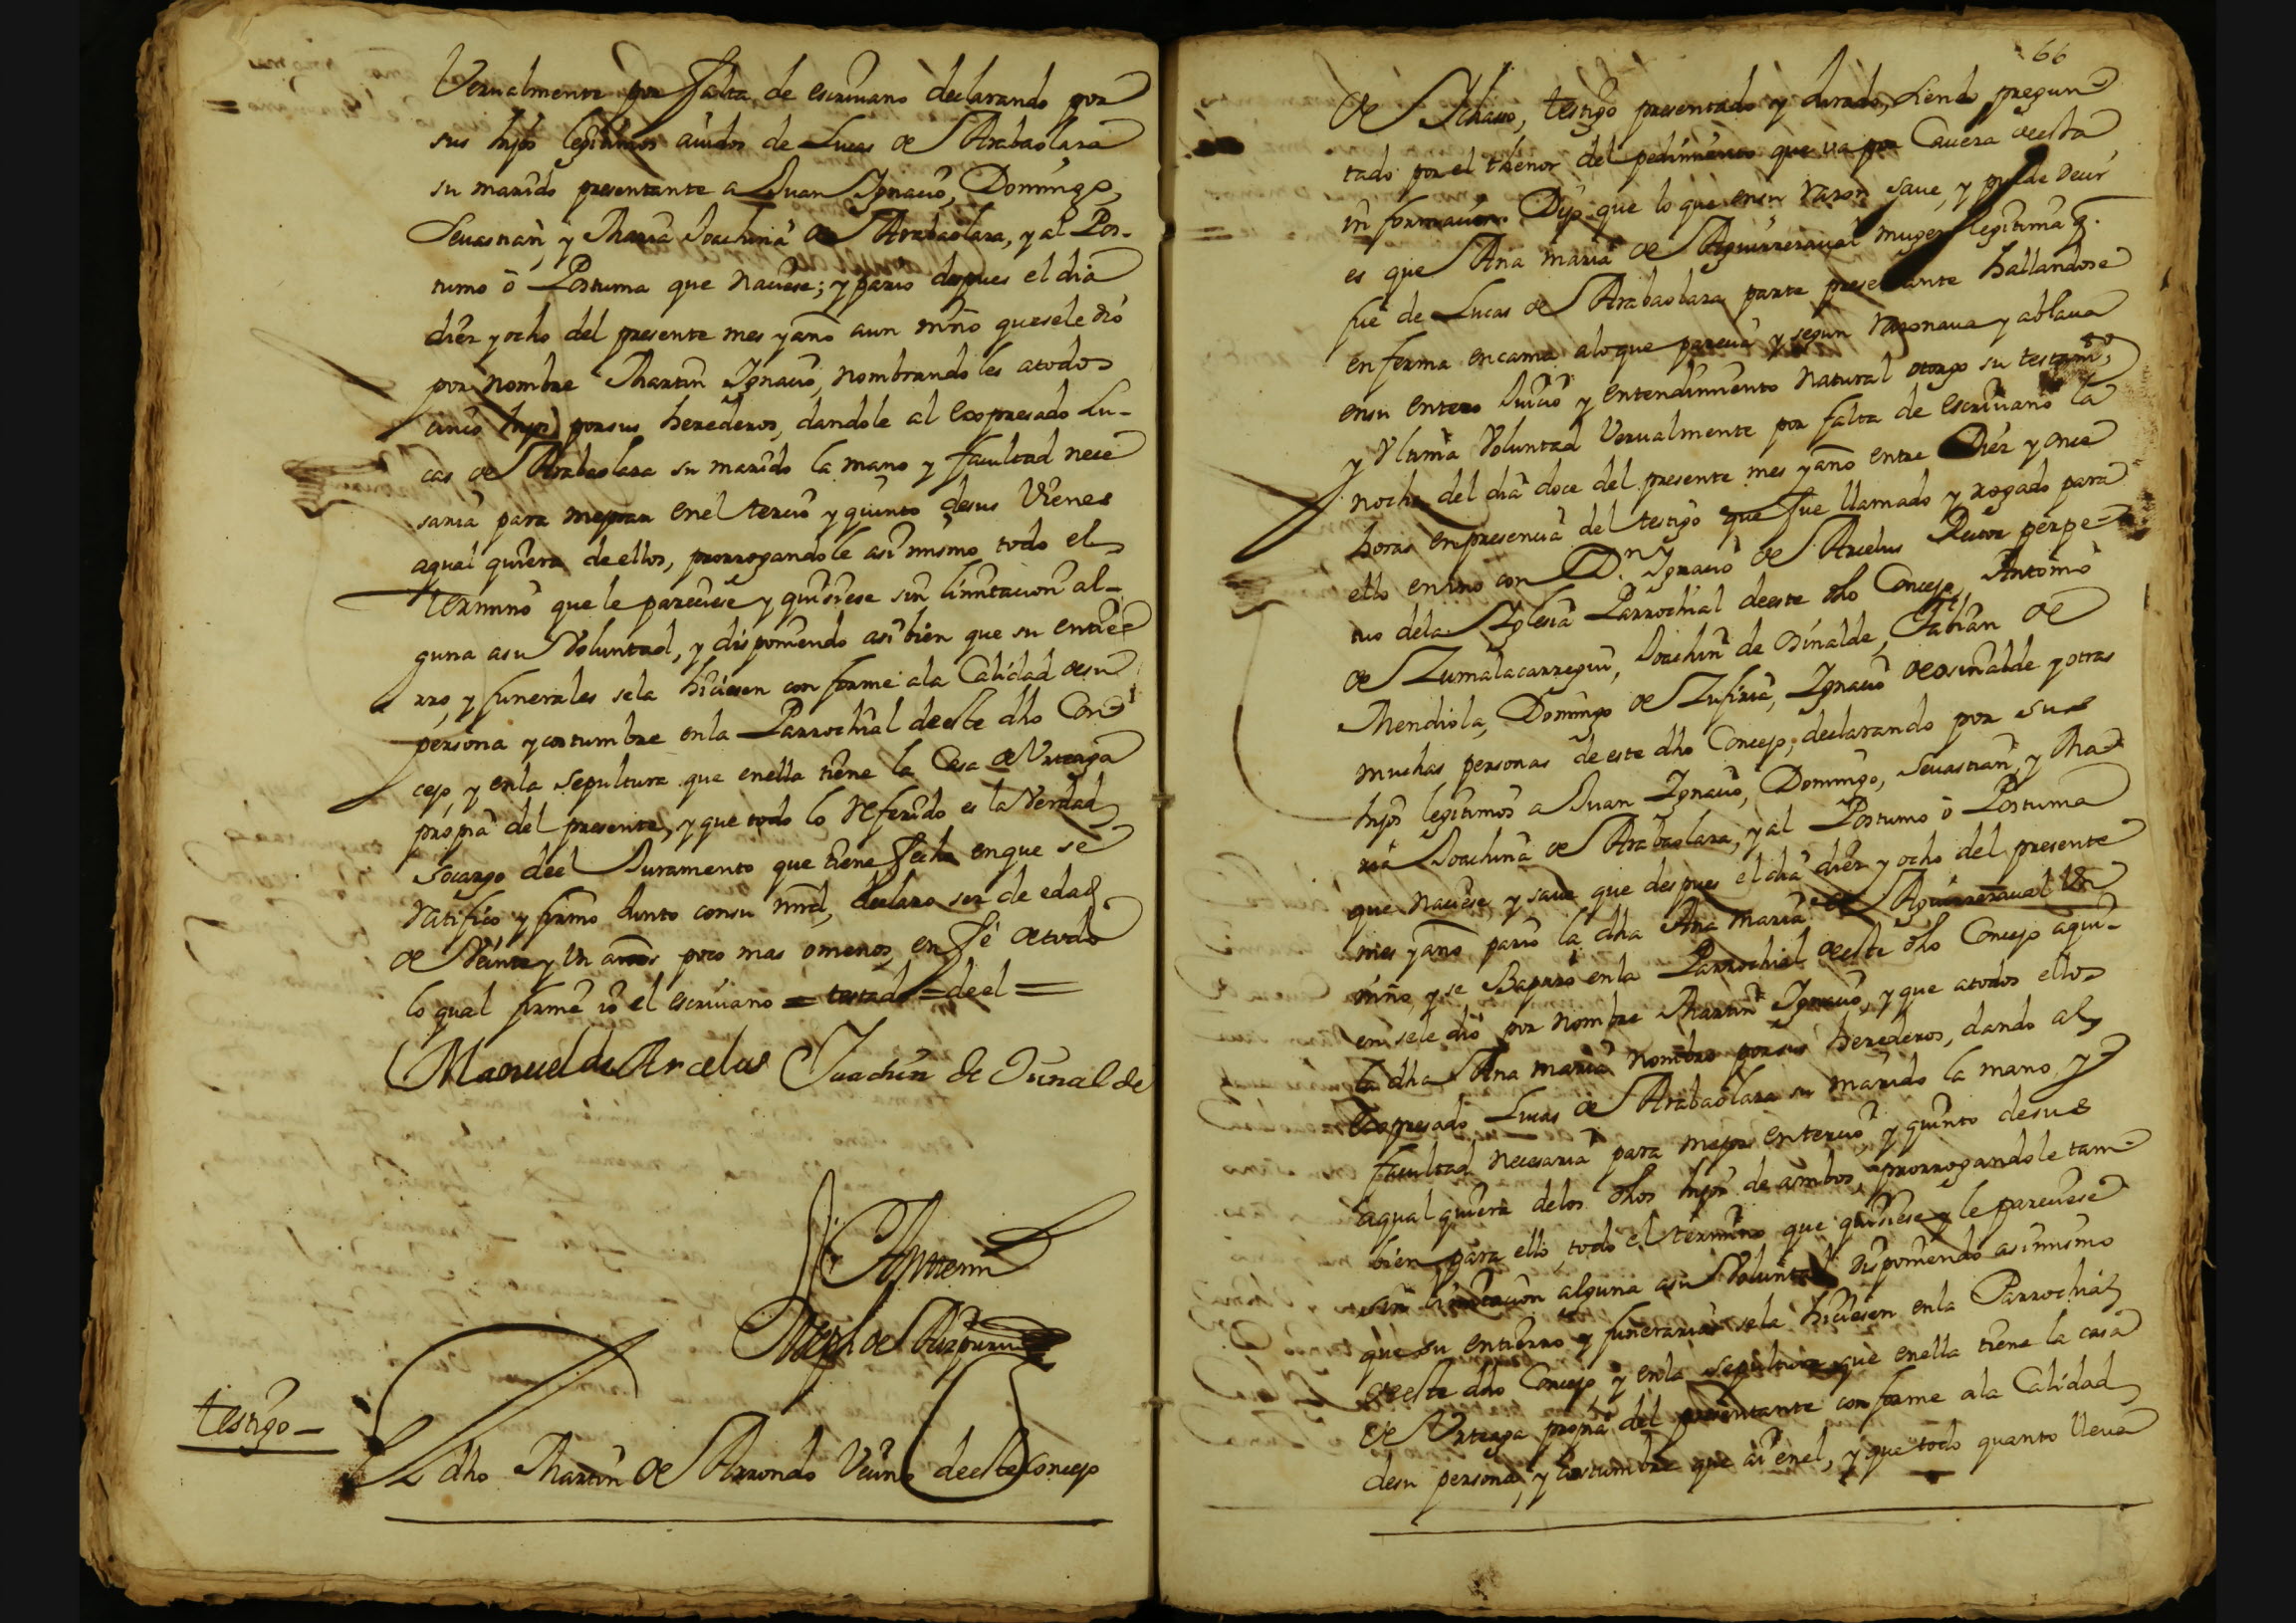 Verualmente por falta de escriuano declarando por
sus hijos legitimos auidos de Lucas de Arabaolara
su marido presentante a Juan Ygnacio, Domingo,
Seuastian, y Maria Joachina de Arabaolara, y al Pos-
tumo ô Postuma que naciese; y pario despues el dia
diez y ocho del presente mes y año aun niño quesele dió
por nombre Martin Ygnacio, nombrandoles atodos
cinco hijos porsus herederos, dandole al expresado Lu-
cas de Arabaolara su marido la mano y facultad nece
saria para mejorar enel tercio y quinto desus Vienes
aqual quiera deellos, prorrogandole asi mismo todo el
termino que le pareciese y quisiese sin limitacion al-
guna asu Voluntad, y disponiendo asi bien que su entie-
rro, y funerales sela hiciesen conforme ala Calidad desu
persona y costumbre enla Parrochial deeste dho Con-
cejo, y enla sepultura que enella tiene la Casa de Vrteaga
propia del presente, y que todo lo referido es la Verdad
socargo deel Juramento que tiene fecho enque se
ratifico y firmo Junto consu mrd, declaro ser de edad
de Veinte y Un años poco mas omenos, en fé de todo
lo qual firmé io el escriuano = testado = deel =
Manuel de Arcelus Juachin de Oinalde
Ante mi
Joseph de
testigo-
El dho Martin de Arrondo Vecino deeste Concejo
66
de Ichaso, testigo presentado y Jurado, siendo pregun-
tado por el thenor del pedimiento que va por Cauera deesta
informacion. Dijo que lo que ensu razon saue, y puede decir
es que Ana maria de Aguirrezaual muger legitima q.
fue de Lucas de Arabaolara parte presentante hallandose
enferma encama aloque parecia y segun razonaua y ablaua
ensu entero Juicio y entendimiento natural otorgo su testamto
y Vltima Voluntad Verualmente por falta de escriuano la
noche del dia doce del presente mes y año entre Diez y once
horas enpresencia del testigo que fue llamado y rogado para
ello en uno con Dn. Ygnacio de Arcelus Rector perpe-
tuo dela Yglesia Parrochial deeste dho Concejo, Antonio
de Zumalacarregui, Joachin de Oinalde, Fabian de
Mendiola, Domingo de Zufiria, Ygnacio de Osinalde y otras
muchas personas de este dho Concejo; declarando por sus
hijos legitimos a Juan Ygnacio, Domingo, Seuastian, y Ma-
ria Joachina de Arabaolara, y al Postumo ô Postuma
que naciese, y saue que despues el dia diez y ocho del presente
mes y año pario la dha Ana maria de Aguirrezaual Un
niño, y se Baptizó enla Parrochial deeste dho Concejo aqui-
en sele dió por nombre Martin Ygnacio, y que atodos ellos
la dha Ana maria nombro porsus herederos, dando al
expresado Lucas de Arabaolara su marido la mano, y
facultad necesaria para mejorar entercio, y quinto desus
aqual quiera delos dhos hijos de ambos, prorrogandole tam-
bien para ello, todo el termino que quisiese y le pareciese
sin limitacion alguna asu Voluntad disponiendo asimismo
que su entierro y funerarias sela hiciesen enla Parrochial
deeste dho Concejo, y enla sepultura que enella tiene la casa
de Vrteaga propia del presentante conforme ala Calidad
desu persona, y costumbre que ai enel, y que todo quanto lleua